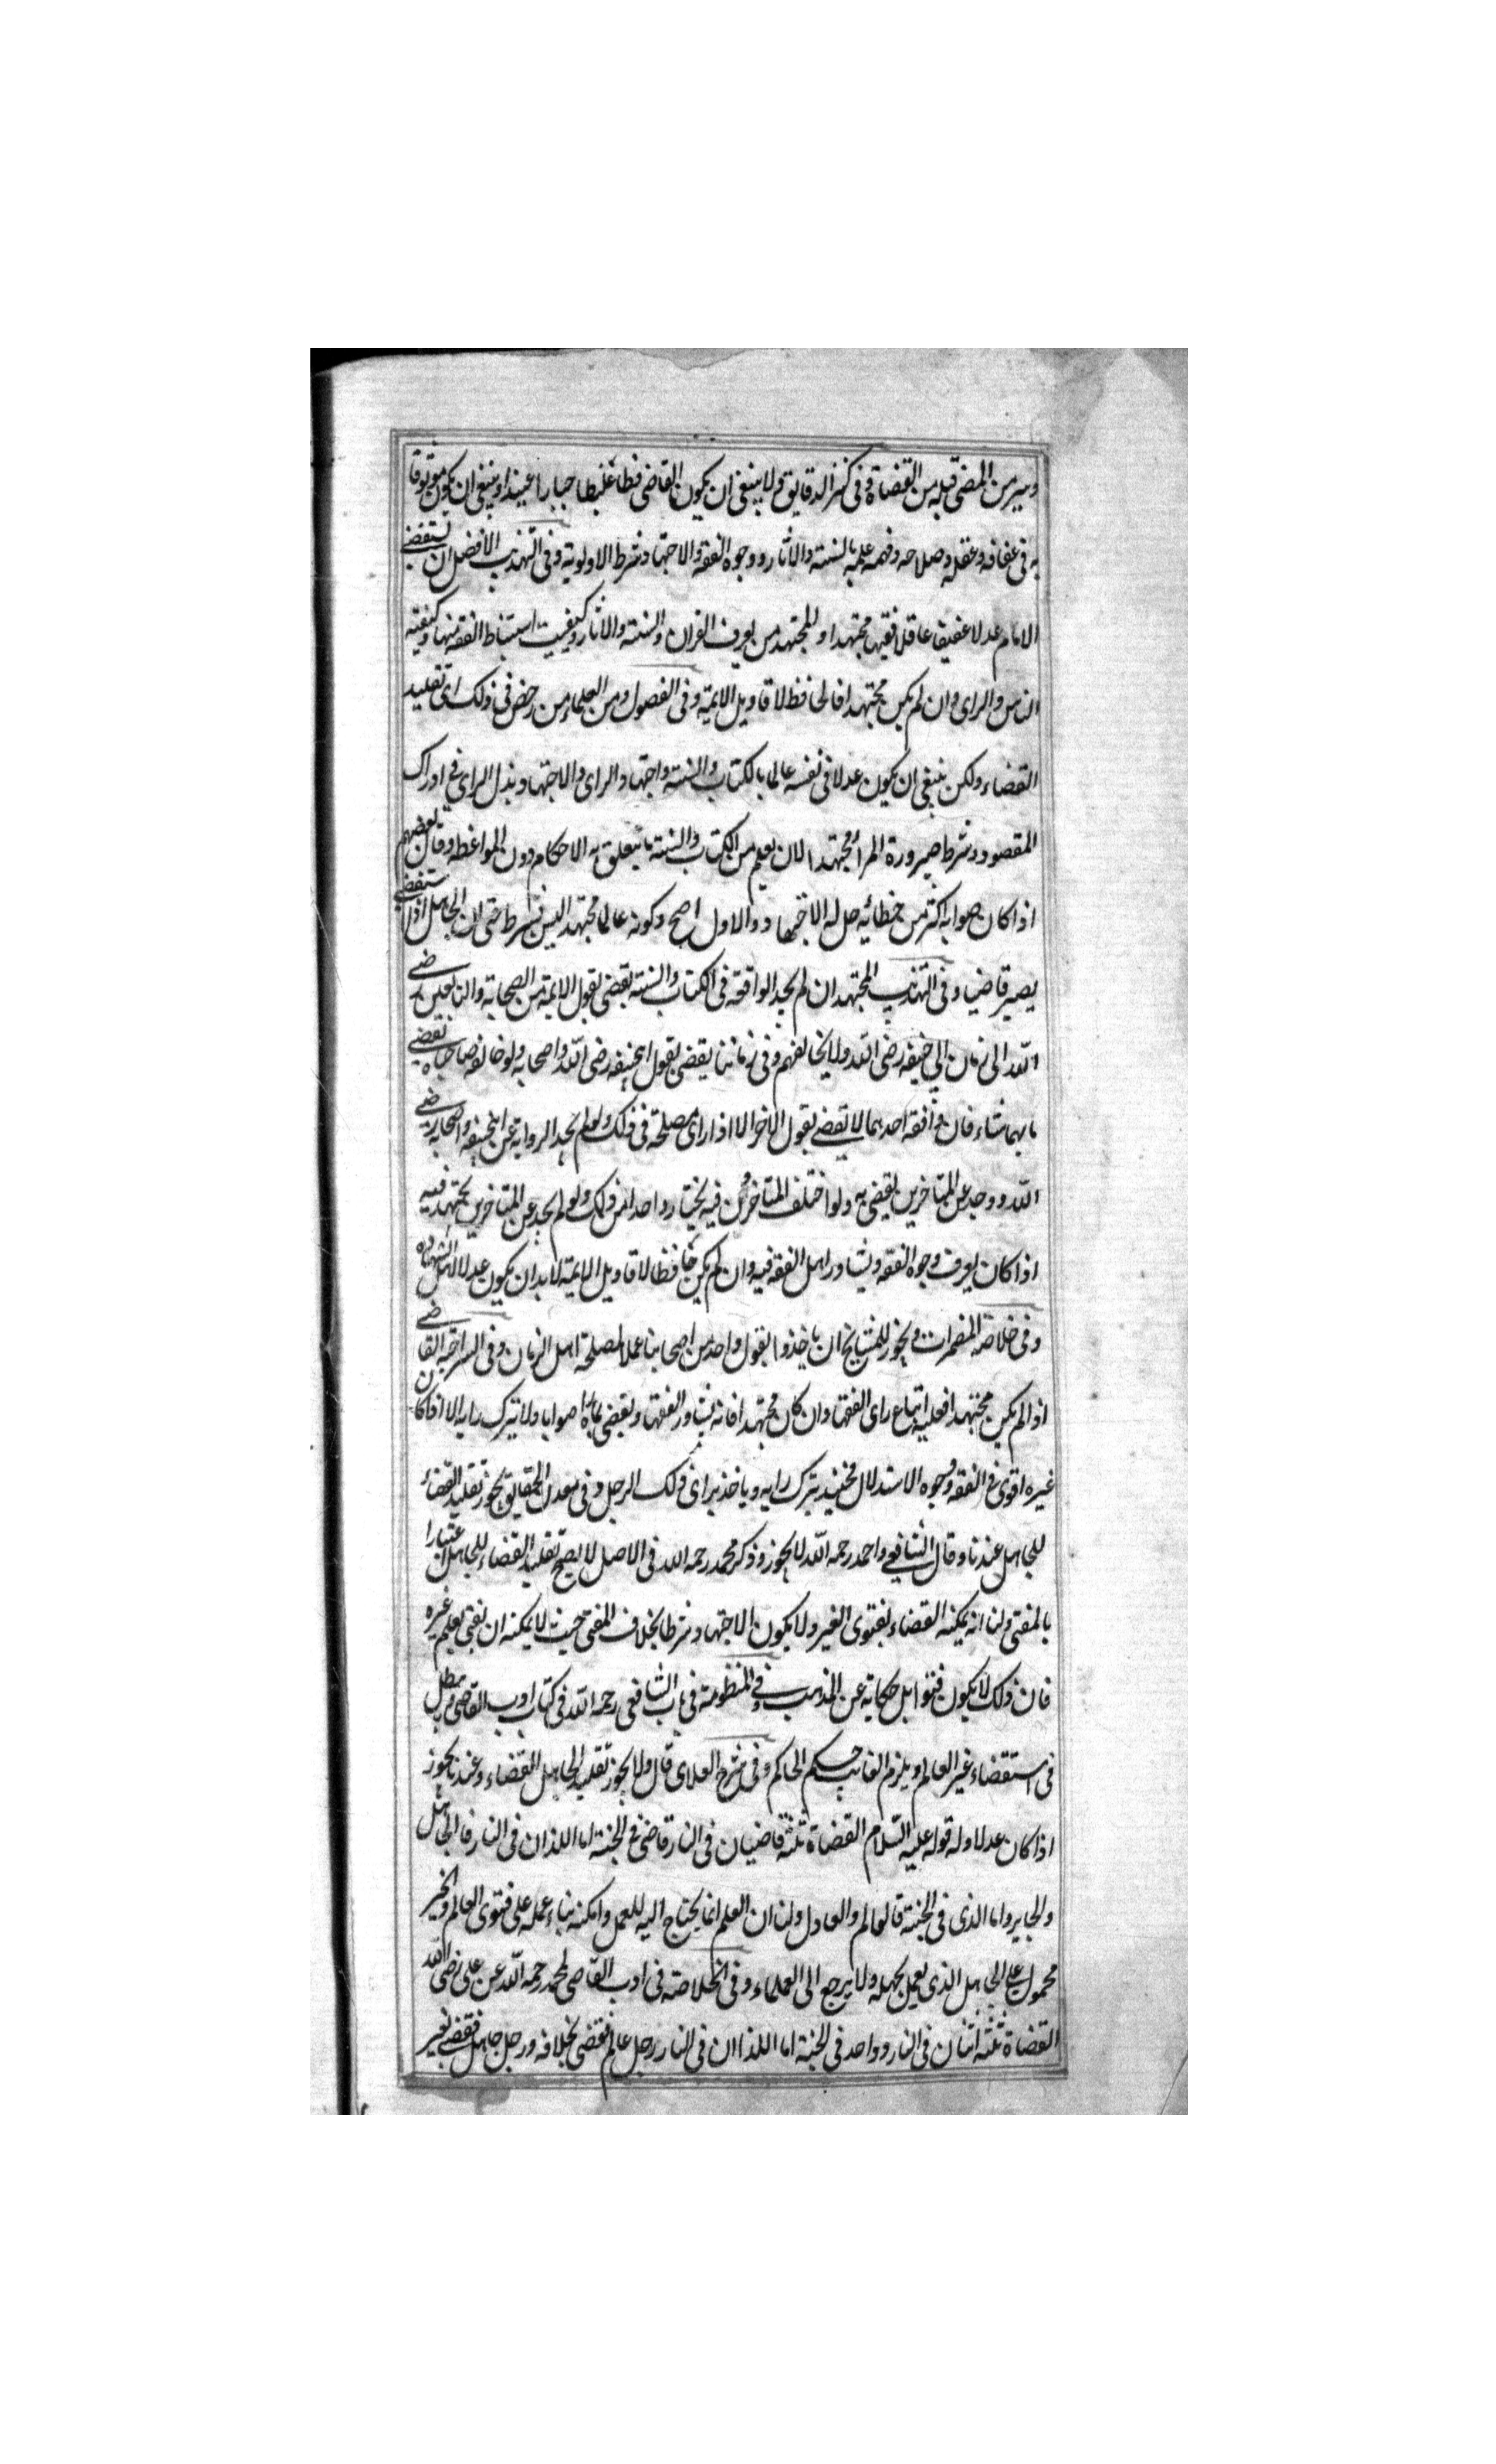 وسير من المضى قبله من القضاة وفى كنز الدقايق ولا ينبغى ان يكون القاضى فظا غليظا جبارا عنيدا وينبغى ان يكون موثوقا
به فى عفافه وعقله وصلاحه وفهمه علمه بالسنة والاثار ووجوه الفقه والاجتهاد شرط الاولوية وفى التهذيب الافضل ان يستقضى
الامام عدلا عفيفا عاقلا فقيها مجتهدا والمجتهد من يعرف القران والسنة والاثار وكيفيت استنباط الفقه منها وكيفية
الناس والراى وان لم يكن مجتهدا فالحافظ لاقاويل الايمة وفى الفصول ومن العلماء من رخص فى ذلك اى تقليد
القضاء ولكن ينبغى ان يكون عدلا فى نفسه عالما بالكتاب والسنة واجتهاد الراى والاجتهاد بذل الراى فى ادراك
المقصود وشرط صيرورة المرأ مجتهدا لان يعلم من الكتاب والسنة ما يتعلق به الاحكام دون المواعظة وقال بعضهم
اذا كان صوابه اكثر من خطائه حل له الاجتهاد والاول اصح وكونه عالما مجتهدا ليس بشرط حتى ان الجاهل اذا ستقضى
يصير قاضيا وفى التهذيب المجتهد ان لم يجد الواقعة فى الكتاب والسنة يقضى بقول الايمة من الصحابة والتابعين رضى
الله الى زمان ابى حنيفه رضى الله ولا يخالفهم وفى زماننا يقضى بقول ابحنيفه رضى الله واصحابه ولو خالفه صاحباه يقضى
بايهما شاء فان وافقه احدهما لا يقضى بقول الاخر الا اذا راى مصلحة فى ذلك ولو لم يجد الرواية عن ابحنيفه واصحابه رضى
الله ووجد عن المتاخرين يقضى به ولو اختلف المتاخرون فيه يختار واحدا من ذلك ولو لم يجد عن المتاخرين يجتهد فيه
اذا كان يعرف وجوه الفقه ويشاور اهل الفقه فيه وان لم يكن حافظا لاقاويل الايمة لا بد ان يكون عدلا اهل الشهادة
وفى خلاصة المضمرات ويجوز للمشايخ ان ياخذوا بقول واحد من اصحابنا عملا لمصلحة اهل الزمان وفى السراجيه القاضى
اذا لم يكن مجتهدا فعليه اتباع راى الفقها وان كان مجتهدا فانه يشاور الفقها ويقضى بما راه صوابا ولا يترك رايه الا اذا كان
غيره اقوى فى الفقه ووجوه الاستدلال فحينيذ يترك رايه وياخذ براى ذلك الرجل وفى معدل الحقايق يجوز تقليد القضاء
للجاهل عندنا وقال الشافعى واحمد رحمه الله لا يجوز وذكر محمد رحمه الله فى الاصل لا يصح تقليد القضاء للجاهل اعتبارا
بالمفتى ولنا انه يمكنه القضاء بفتوى الغير ولا يكون الاجتهاد شرطا بخلاف المفتى حيث لا يمكنه ان يفتى بعلم غيره
فان ذلك لا يكون فتوا بل حكاية عن المذهب وفى المنظومة فى باب الشافعى رحمه الله فى كتاب ادب القاضى ويبطل
فى استقضاء غير العالم ويلزم الغايب حكم الحاكم وفى شرح العلاى قال ولا يجوز تقليد الجاهل القضاء وعندنا يجوز
اذا كان عدلا وله قوله عليه السلام القضاة ثلثة قاضيان فى النار وقاض فى الجنة اما اللذان فى النار فالجاهل
والجاير واما الذى فى الجنة فالعالم والعادل ولنا ان العلم انما يحتاج اليه للعمل وامكنه بناء عمله على فتوى العالم والخبر
محمول على الجاهل الذى يعمل بجهله ولا يرجع الى العلماء وفى الخلاصة فى ادب القاضى لمحمد رحمه الله عن على رضى الله
القضاة ثلثة اثنان فى النار وواحد فى الجنة اما اللذان فى النار رجل عالم فقضى بخلافه ورجل جاهل فقضى بغير